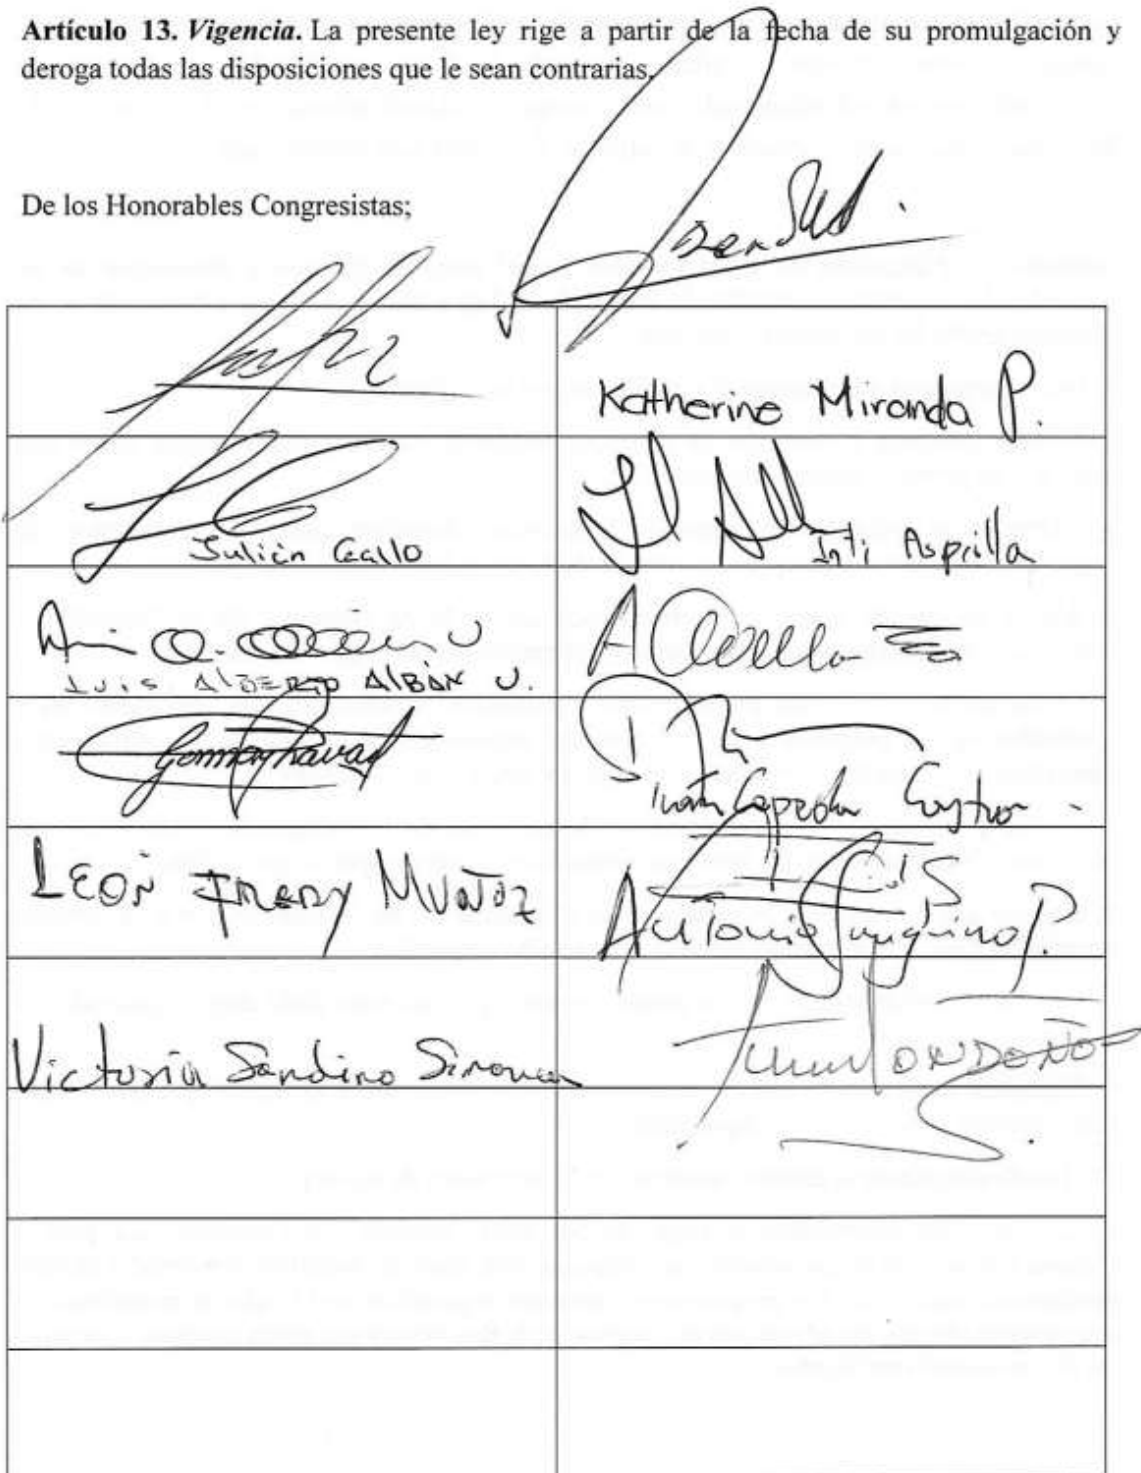 Artículo 13. Vigencia. La presente ley rige a partir de la fecha de su promulgación y
deroga todas las disposiciones que le sean contrarias.
De los Honorables Congresistas;
Katherine Miranda P.
Julián Gallo
Inti Asprilla
LUIS ALBERTO ALBÁN U.
Iván Cepeda Castro
LEON FREDY MUÑOZ
Antonio Sanguino P.
Victoria Sandino Simanca
LONDOÑO